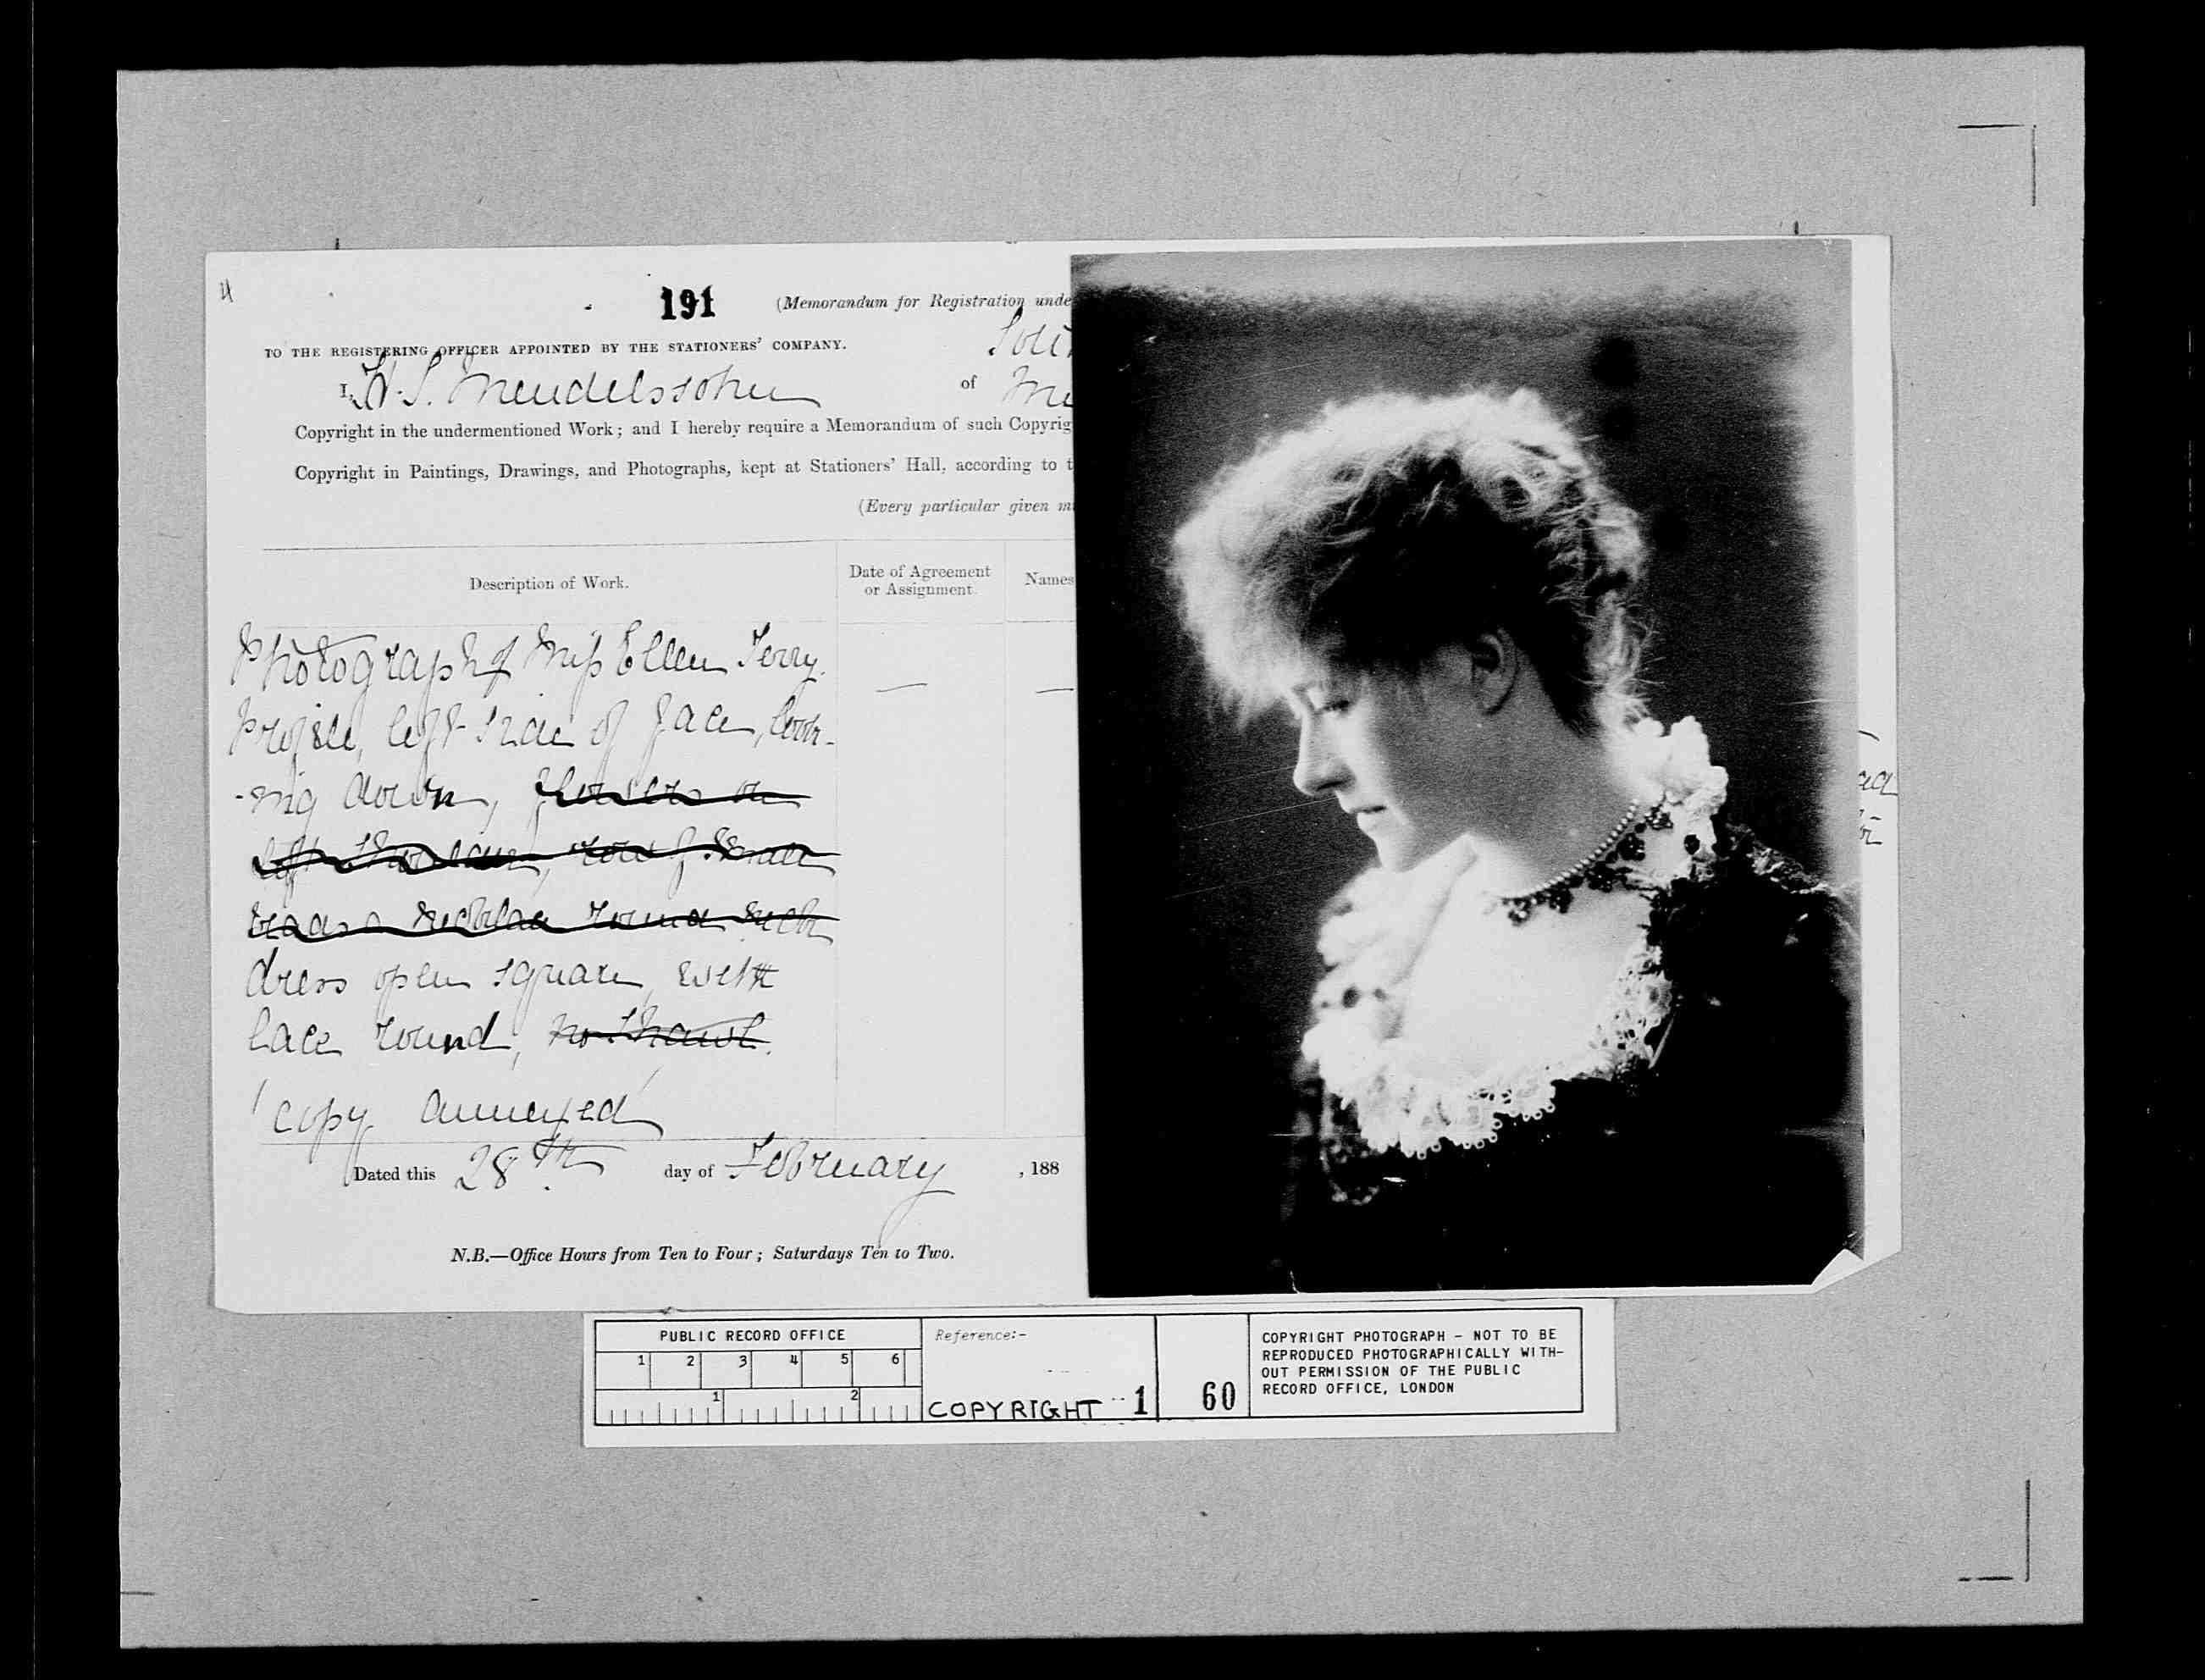 191 (Memorandum for Registration unde
TO THE REGISTERING OFFICER APPOINTED BY THE STATIONERS' COMPANY.
I, H. S. Mendelssohn of
Copyright in the undermentioned Work; and I hereby require a Memorandum of such Copyrig
Copyright in Paintings, Drawings, and Photographs, kept at Stationers' Hall, according to t
(Every particular given m
Description of Work.
Date of Agreement
or Assignment.
Names
Photograph of Miss Ellen Terry.
Profile, left side of face, look-
-ing down, flowers on
left shoulder, row of small
beads necklace round neck
dress open square, with
lace round, no shawl.
'copy annexed'
Dated this 28th day of February, 188
N.B.—Office Hours from Ten to Four; Saturdays Ten to Two.
PUBLIC RECORD OFFICE
1 2 3 4 5 6
1 2
Reference:-
COPYRIGHT 1
60
COPYRIGHT PHOTOGRAPH - NOT TO BE
REPRODUCED PHOTOGRAPHICALLY WITH-
OUT PERMISSION OF THE PUBLIC
RECORD OFFICE, LONDON